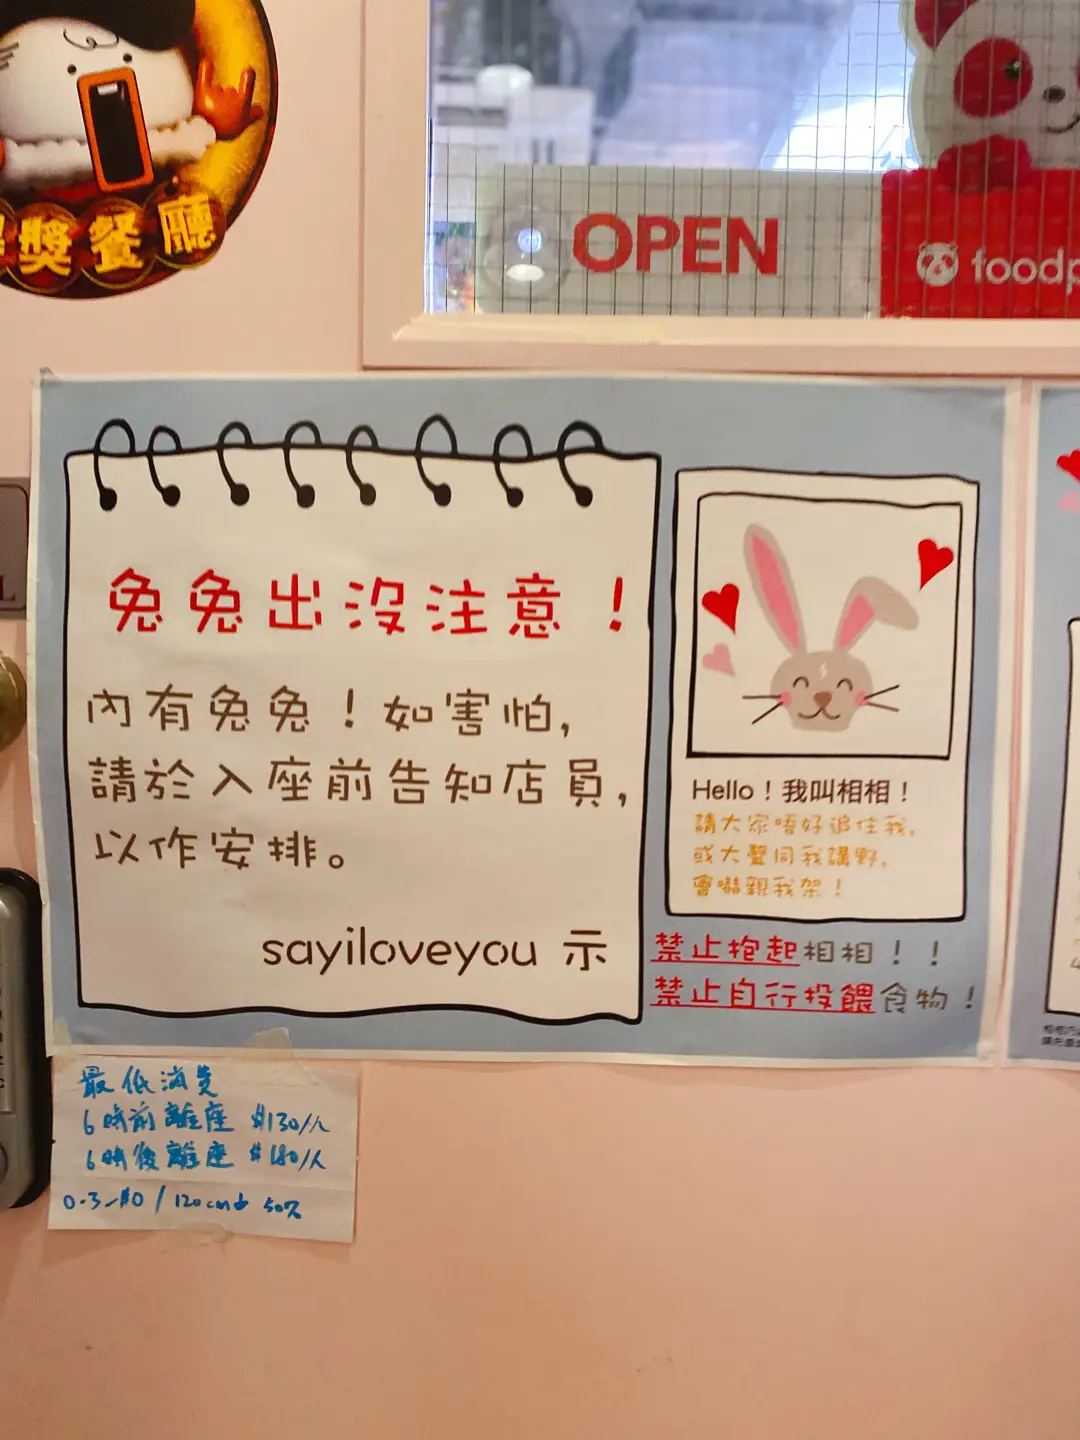 獎餐廳
OPEN
foodp
兔兔出沒注意！
內有兔兔！如害怕，
請於入座前告知店員，
以作安排。
sayiloveyou 示
Hello！我叫相相！
請大家唔好追住我，
或大聲同我講野，
會嚇親我架！
禁止抱起相相！！
禁止自行投餵食物！
最低消費
6時前離座 $130/人
6時後離座 $180/人
0-3-$0 / 120cm↓ 50%